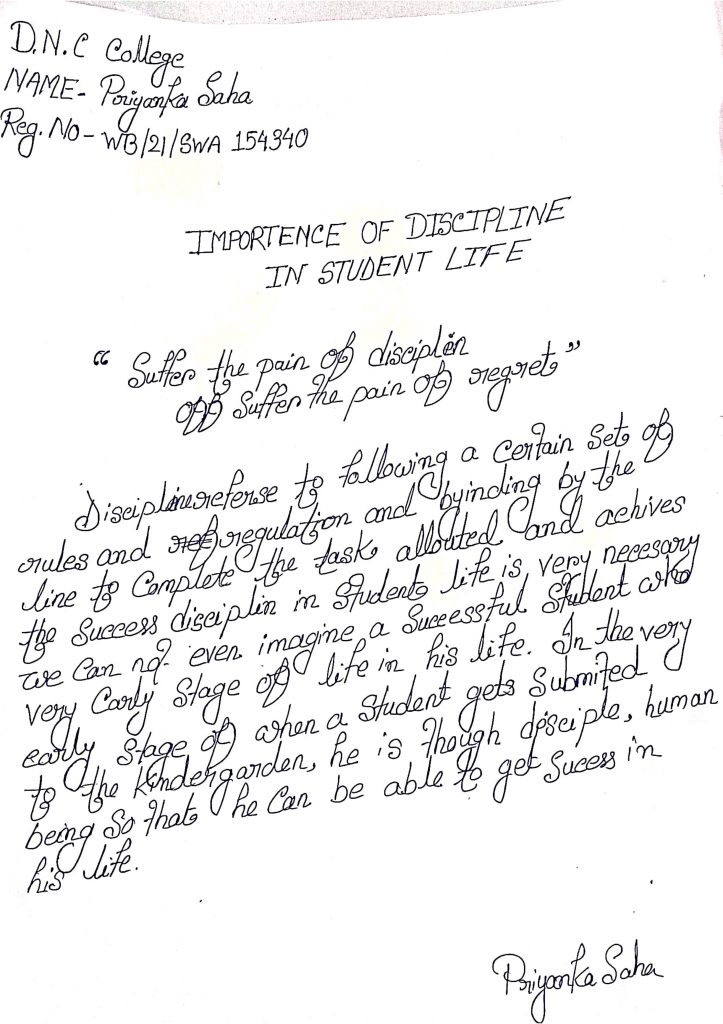 D.N.C College
NAME- Priyanka Saha
Reg. No- WB/21/SWA 154340
IMPORTENCE OF DISCIPLINE
IN STUDENT LIFE
"Suffer the pain of disciplin
Off Suffer the pain of regret"
Discipline referse to following a certain Set of
rules and ref regulation and byinding by the
line to Complete the task allouted and achives
the Success disciplin in Student life is very necesary
we Can not even imagine a Successful Student who
very Early Stage of life in his life. In the very
early Stage of when a Student gets Submited
to the kindergarden, he is though disciple, human
being So that he Can be able to get Sucess in
his life.
Priyanka Saha